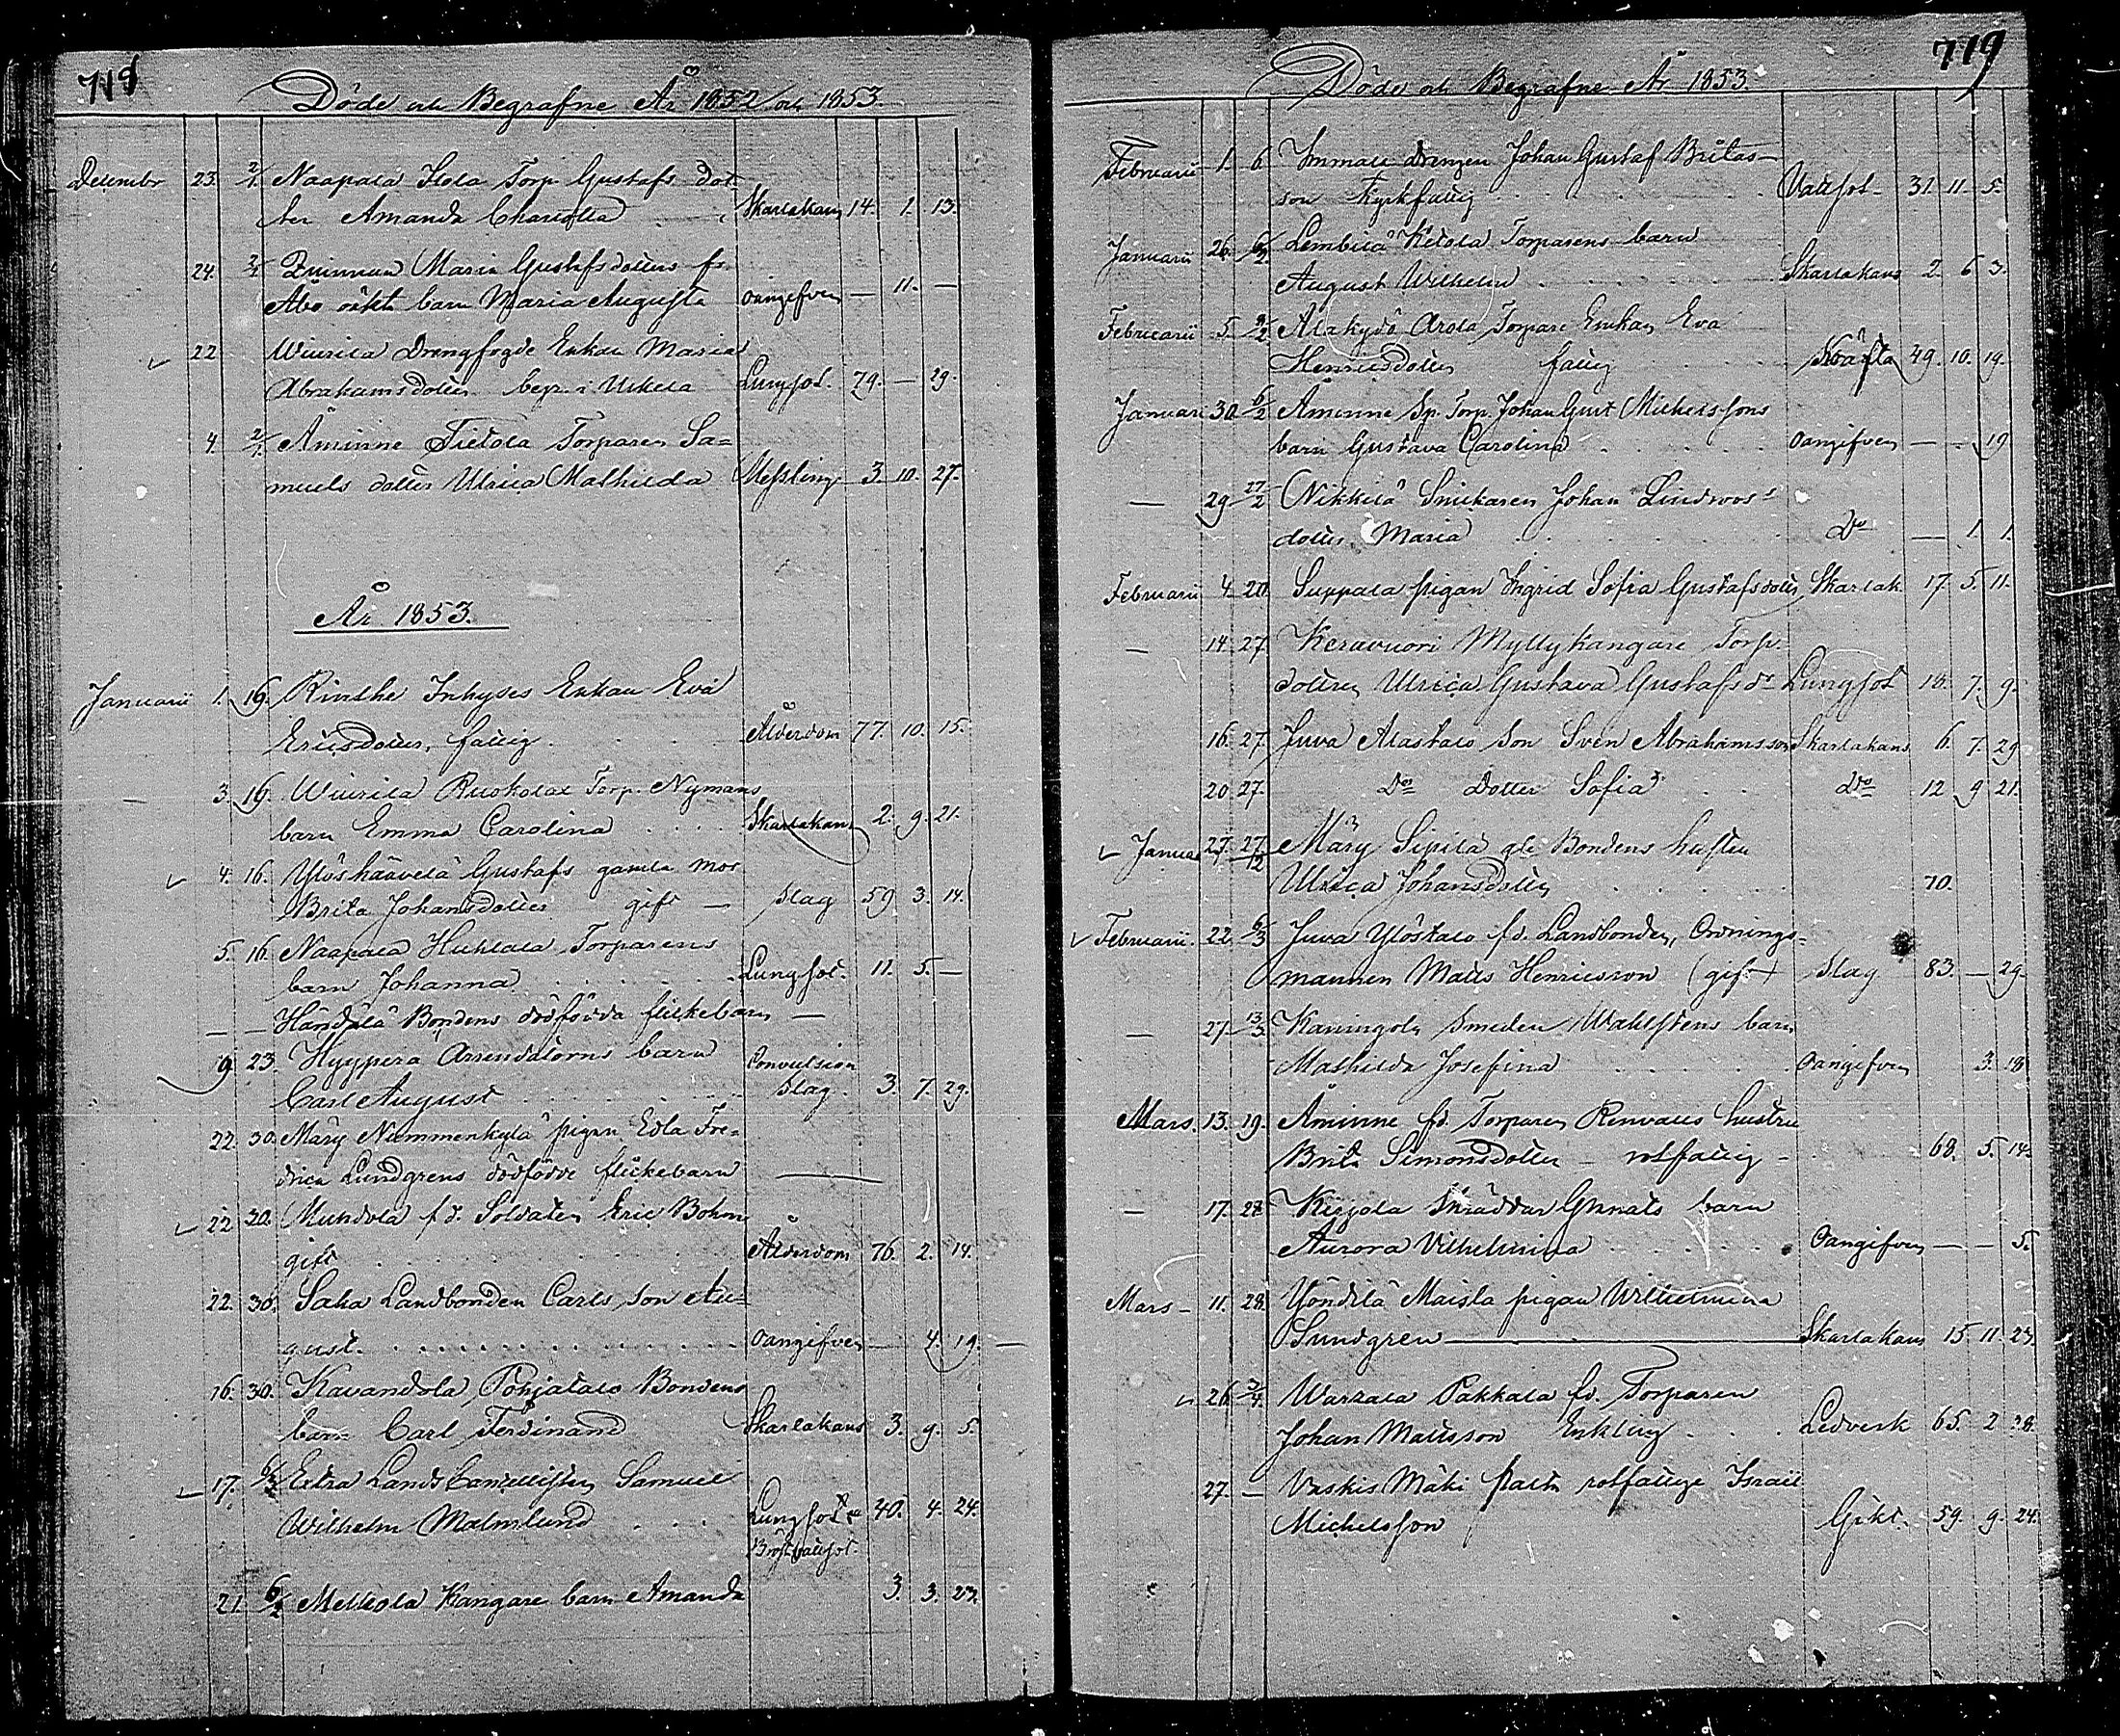 718
Döde och Begrafne År 1852 och 1853
Decembr 23. 2/1. Naapala Isola Torp. Gustafs dot-
ter Amanda Charlotta Skarlakans 14. 1. 13.
24. 2/1 Quinnan Maria Gustafsdotters fr.
Åbo oäkta barn Maria Augusta oangifven — 11. —
22 Wiurila Drengfogde Enkan Maria
Abrahamsdotter begr. i Uskela Lungsot. 79. — 29.
4. 2/1. Åminne Tietola Torparen Sa=
muels dotter Ulrica Mathilda Messling 3. 10. 27.
År 1853.
Januarii 1. 16. Rinthe Inhyses Enkan Eva
Ericsdotter, fattig Ålderdom 77. 10. 15.
— 3. 16. Wiurila Ruokolax Torp. Nymans
barn Emma Carolina Skarlakans 2. 9. 21.
4. 16. Ylöshäävelä Gustafs gamla mor
Brita Johansdotter gift — Slag 59 3. 14.
5. 16. Naapala Huhtala Torparens
barn Johanna Lungsot. 11. 5. —
— — Händälä Bondens dödfödda flickebarn —
9. 23. Hyypperä Arrendatorns barn Convulsion
Carl August Slag. 3. 7. 29.
22. 30. Märy Nummenkylä pigan Edla Fre=
drica Lundgrens dödfödde flickebarn —
22. 30. Mundola f.d. Soldaten Eric Bohm
gift Ålderdom 76. 2. 14.
22. 30. Saha Landbonden Carls son Au=
gust. Oangifven — 4. 19. —
16. 30. Kavandola Pohjatalo Bondens
barn Carl Ferdinand Skarlakans 3. 9. 5.
17. 6/2 Extra LandsCancellisten Samuel
Wilhelm Malmlund Lungsot o 40. 4. 24.
Bröstvattsot.
21. 6/2 Melkola Kangare barn Amanda 3. 3. 23.
719
Döde och Begrafne År 1853.
Februarii 1. 6. Immala drengen Johan Gustaf Britas-
son Kyrkfattig Vattsot 31. 11. 5.
Januarii 26. 6/2. Lembilä Ketola Torparens barn
August Wilhelm Skarlakans 2. 6 3.
Februarii 5. 9/2 Alakydö Arola Torpare Enkan Eva
Henricsdotter fattig Kräfta 49. 10. 19.
Januari 30. 6/2 Åminne Sp. Torp. Johan Gust Michelssons
barn Gustava Carolina oangifven — — 19
— 29. 27/2 Nikkilä Snickaren Johan Lindroos's
dotter Maria Do — 1. 1.
Februarii 4. 20. Suppala pigan Ingrid Sofia Gustafsdotter Skarlak. 17. 5. 11.
— 14. 27. Keravuori Myllykangare Torp.
dottren Ulrica Gustava Gustafsdr Lungsot 18. 7. 9.
16. 27. Juva Alastalo Son Sven Abrahamsson Skarlakans 6. 7. 29
20. 27. Do Dotter Sofia Do 12 9 21.
Januar 27. 27/12 Märy Sipilä gle Bondens hustru
Ulrica Johansdotter 70.
Februarii. 22. 6/3 Juva Ylöstalo f.d. Landbonden, Ordnings=
mannen Matts Henricsson (gift) Slag 83. — 29.
— 27. 13/3. Kaningola Smeden Wahlstens barn
Mathilda Josefina Oangifven 3. 18
Mars. 13. 19. Åminne fd. Torparen Renvalls hustru
Brita Simonsdotter — rotfattig — 68. 5. 14.
— 17. 28 Kirjola Skräddar Granats barn
Aurora Vilhelmina Oangifven — — 5.
Mars — 11. 28. Yöndilä Maisla pigan Wilhelmina
Sundgren Skarlakans 15 11. 23.
26. 3/4. Warzala Pakkala fd. Torparen
Johan Mattsson Enkling Ledverk 65. 2 28.
27. — Vaskis Mäki rotfattige Israël
Michelsson Gikt. 59. 9. 24.